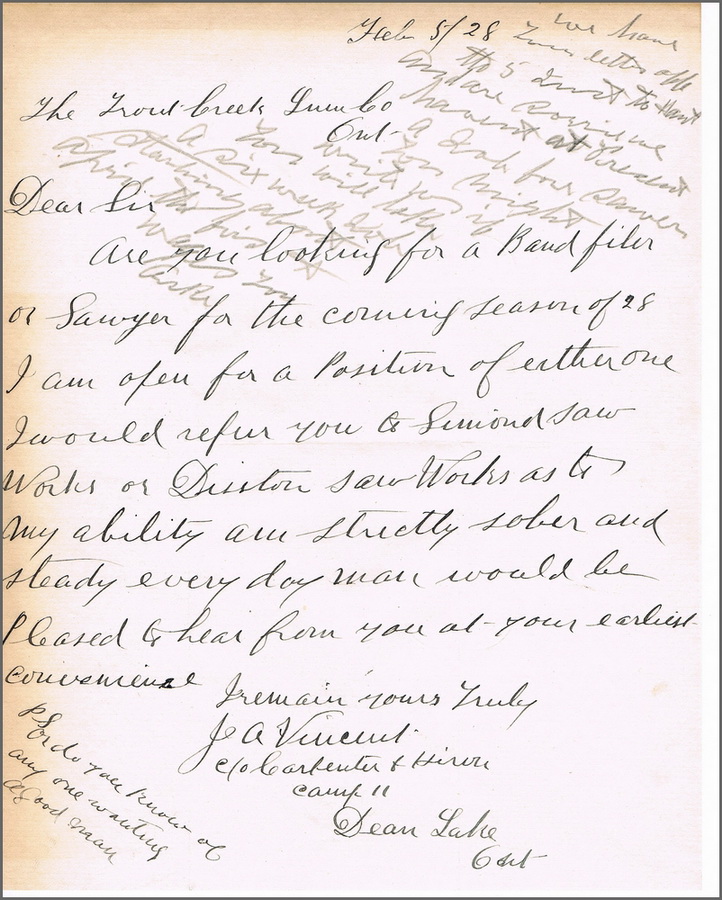 Feb 5/28
The Trout Creek Lum Co
Ont-
Dear Sir
Are you looking for a Band filer
or Sawyer for the coming season of 28
I am open for a Position of either one
I would refer you to Simond saw
Works or Disston saw Works as to
my ability am strictly sober and
steady every day man would be
Pleased to hear from you at your earliest
convenience
I remain yours Truly
J A Vincent
c/o Carpenter & Hixon
Camp 11
Dean Lake
Ont
PS or do you know of
any one wanting
a good man
we have
Your letter
of the 5
and are
haven't at present
a
for sawyer
You might
write
You will take
A six weeks
starting about
the first
wages you